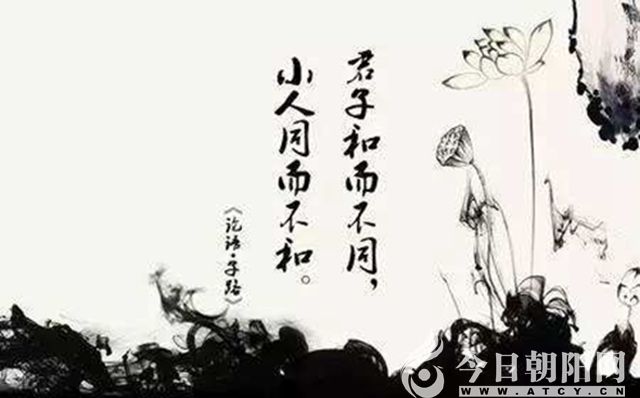 君子和而不同，
小人同而不和。
《论语·子路》
今日朝阳网
WWW.ATCY.CN.COM